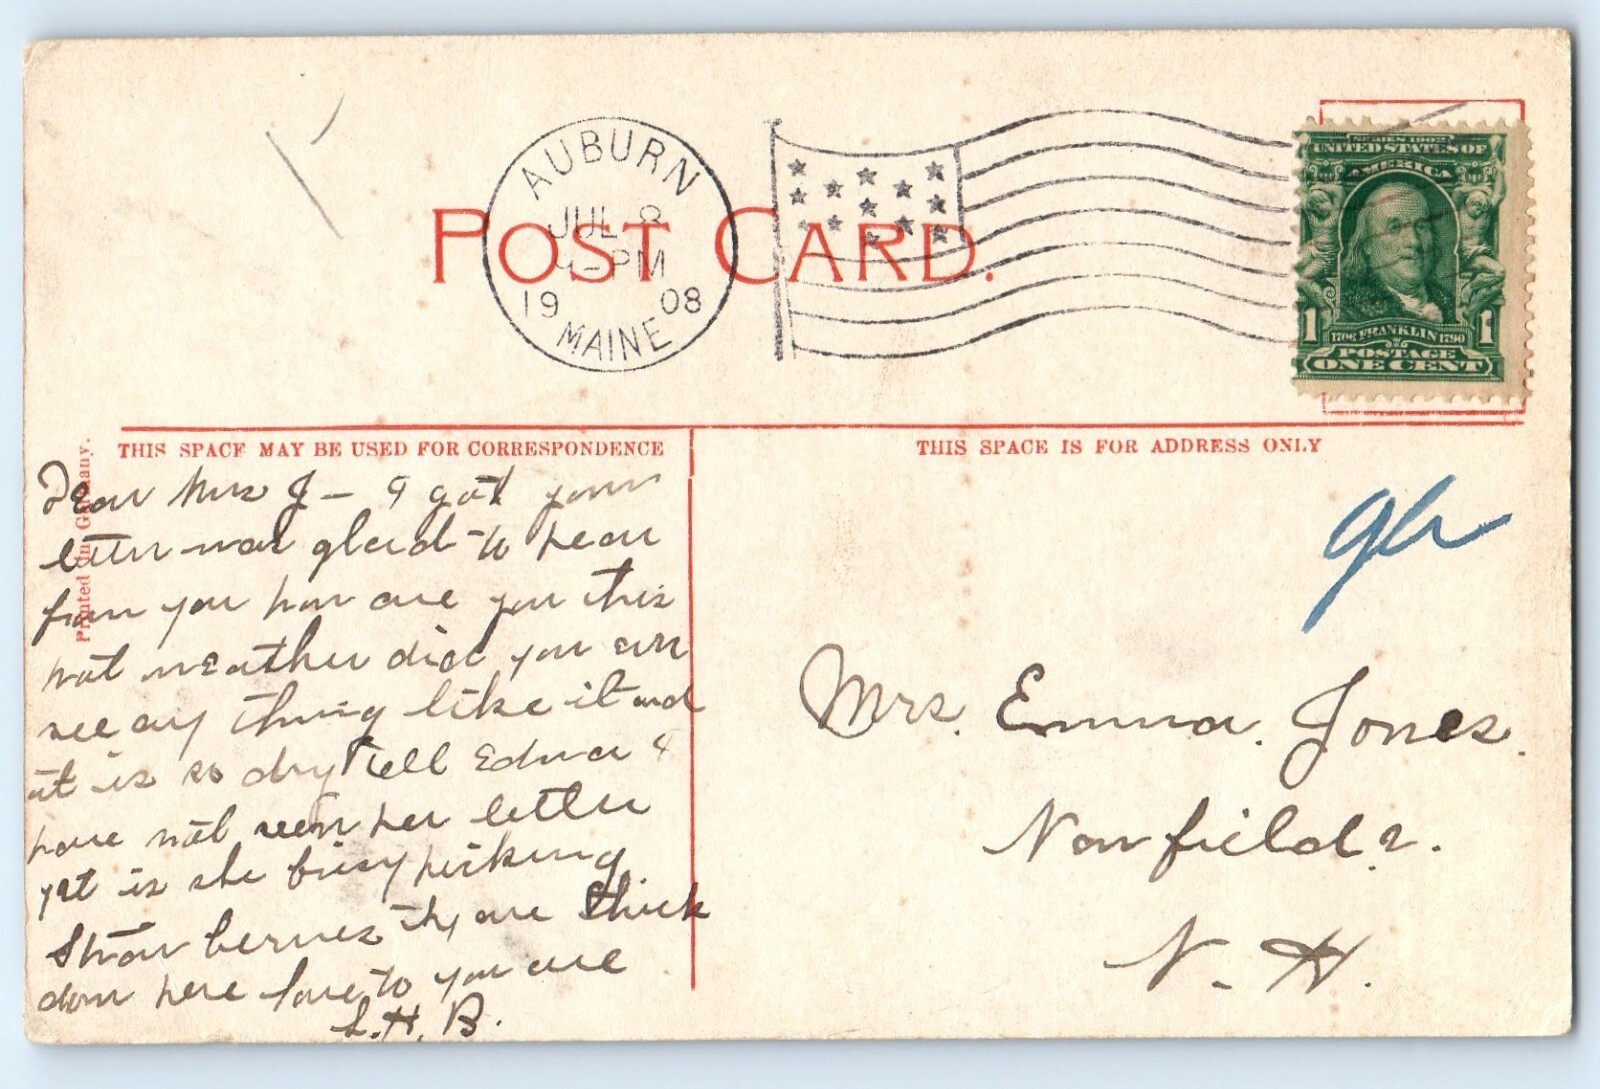 AUBURN
JUL 8
-PM
19 08
MAINE
SERIES 1902
UNITED STATES OF
AMERICA
1 1
1706 FRANKLIN 1790
POSTAGE
ONE CENT
POST CARD.
THIS SPACE MAY BE USED FOR CORRESPONDENCE
THIS SPACE IS FOR ADDRESS ONLY
Printed in Germany.
Dear Mrs J- I got your
letter was glad to hear
from you how are you this
hot weather did you ever
see any thing like it and
it is so dry tell Edna I
have not seen her letter
yet is she busy picking
Straw berries they are thick
down here love to you all
L.H.B.
Mrs. Emma. Jones.
Nonfield
N. H.